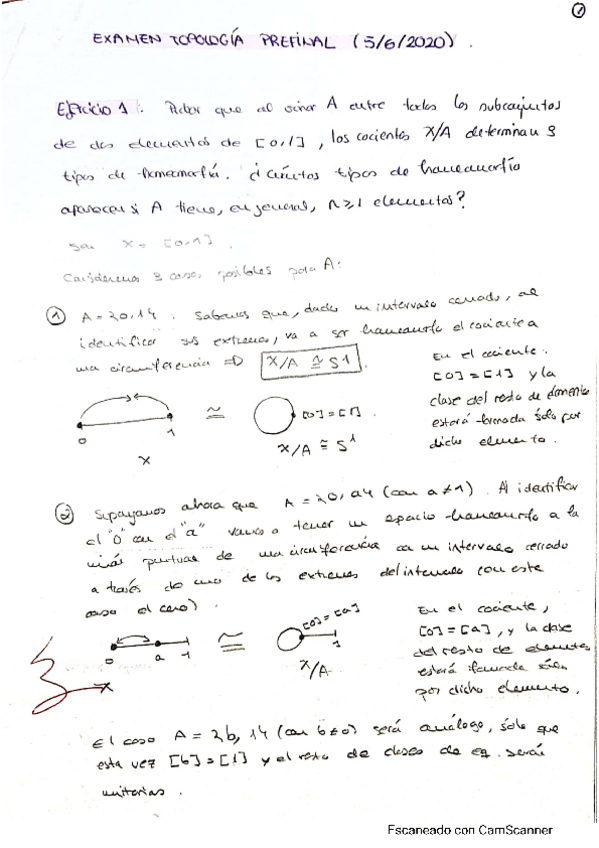 1
EXAMEN TOPOLOGÍA PREFINAL (5/6/2020).
Ejercicio 1: Probar que al variar A entre todos los subconjuntos
de dos elementos de [0,1], los cocientes X/A determinan 3
tipos de homeomorfía. ¿Cuántos tipos de homeomorfía
aparecen si A tiene, en general, n≥1 elementos?
Sea X = [0,1].
Consideremos 3 casos posibles para A:
① A = {0,1}. Sabemos que, dado un intervalo cerrado, al
identificar sus extremos, va a ser homeomorfo el cociente a
una circunferencia => X/A ≅ S¹
En el cociente,
[0]=[1] y la
clase del resto de elementos
estará formada sólo por
dicho elemento.
0 1 ≅ [0]=[1].
X X/A ≅ S¹
② Supongamos ahora que A = {0,a} (con a≠1). Al identificar
el "0" con el "a" vamos a tener un espacio homeomorfo a la
unión puntual de una circunferencia con un intervalo cerrado
a través de uno de los extremos del intervalo (en este
caso el cero).
En el cociente,
[0]=[a], y la clase
del resto de elementos
estará formada sólo
por dicho elemento.
0 a 1 ≅ [0]=[a] 1
X X/A
El caso A = {b,1} (con b≠0) será análogo, sólo que
esta vez [b]=[1] y el resto de clases de eq. serán
unitarias.
Escaneado con CamScanner